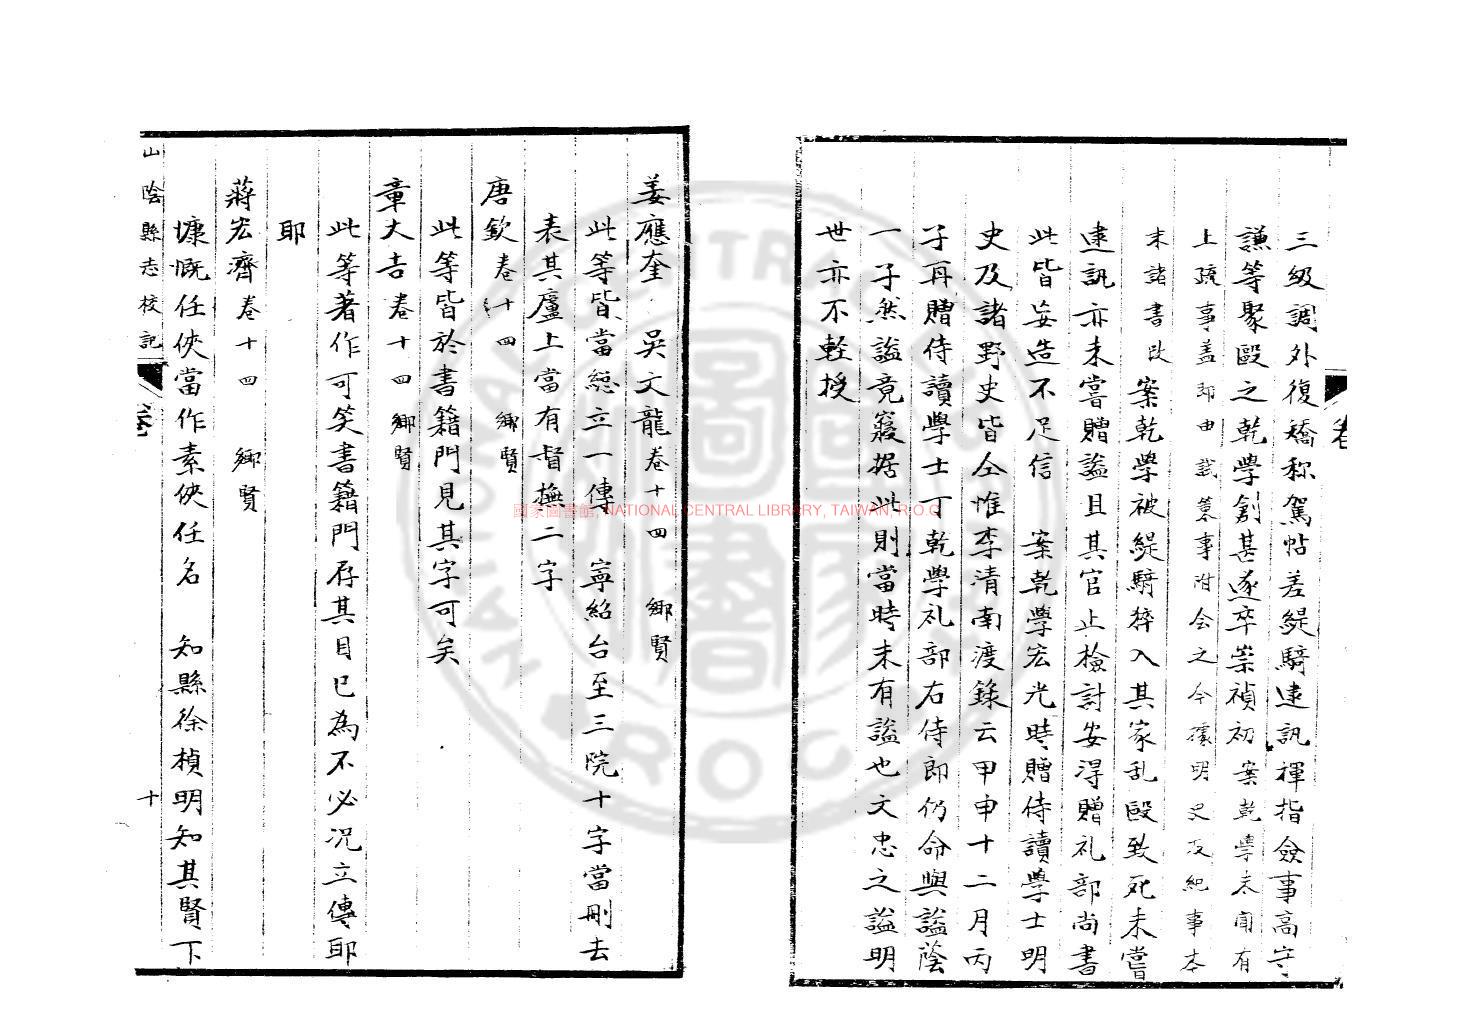 三級調外復矯称駕帖差緹騎逮訊禈指僉事高守
謙等聚毆之乾學創甚遂卒崇禎初 案乾學未聞有
上疏事盖即由試策事附会之今據明史及紀事本
末諸書改 案乾學被緹騎捽入其家乱毆致死未嘗
逮訊亦未嘗贈謚且其官止檢討安淂贈礼部尚書
此皆妄造不足信 案乾學宏光時贈侍讀學士明
史及諸野史皆仝惟李清南渡錄云甲申十二月丙
子再贈侍讀學士丁乾學礼部右侍郎仍命與謚蔭
一子然謚竟寢据此則當時未有謚也文忠之謚明
世亦不輕授
姜應奎 吳文龍卷十四 鄉賢
此等皆當総立一傳 寧紹台至三院十字當刪去
表其廬上當有督撫二字
唐欽卷十四 鄉賢
此等皆於書籍門見其字可矣
章大吉卷十四鄉賢
此等著作可笑書籍門存其目已為不必況立傳耶
耶
蔣宏濟卷十四 鄉賢
慷慨任俠當作素俠任名 知縣徐楨明知其賢下
山陰縣志校記
卷
十
卷
國家圖書館, NATIONAL CENTRAL LIBRARY, TAIWAN, R.O.C